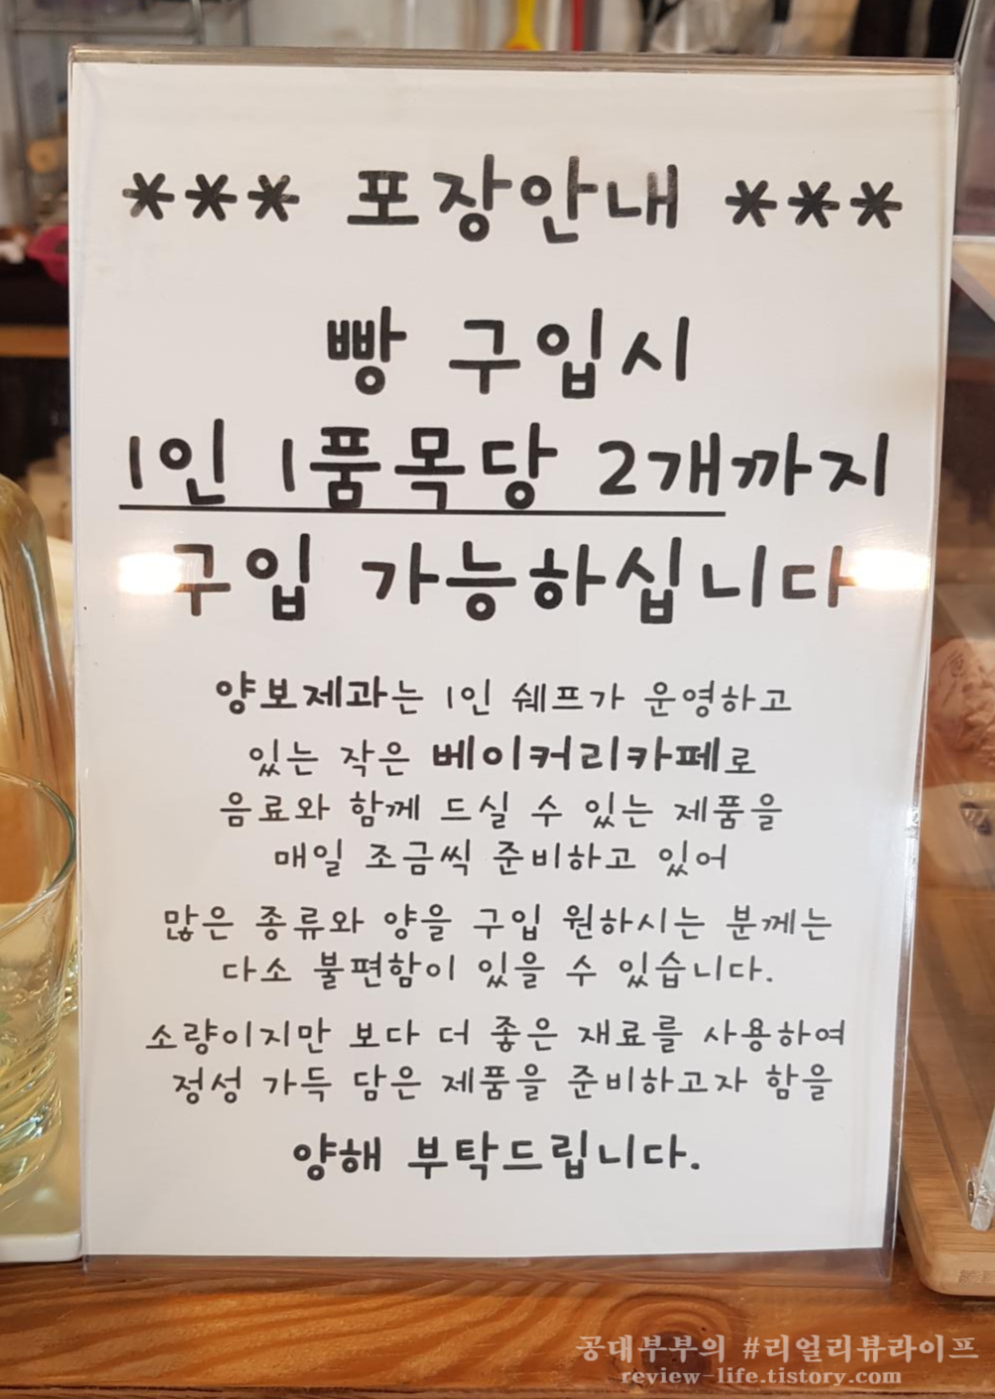 *** 포장안내 ***
빵 구입시
1인 1품목당 2개까지
구입 가능하십니다
양보제과는 1인 쉐프가 운영하고
있는 작은 베이커리카페로
음료와 함께 드실 수 있는 제품을
매일 조금씩 준비하고 있어
많은 종류와 양을 구입 원하시는 분께는
다소 불편함이 있을 수 있습니다.
소량이지만 보다 더 좋은 재료를 사용하여
정성 가득 담은 제품을 준비하고자 함을
양해 부탁드립니다.
공대부부의 #리얼리뷰라이프
review-life.tistory.com